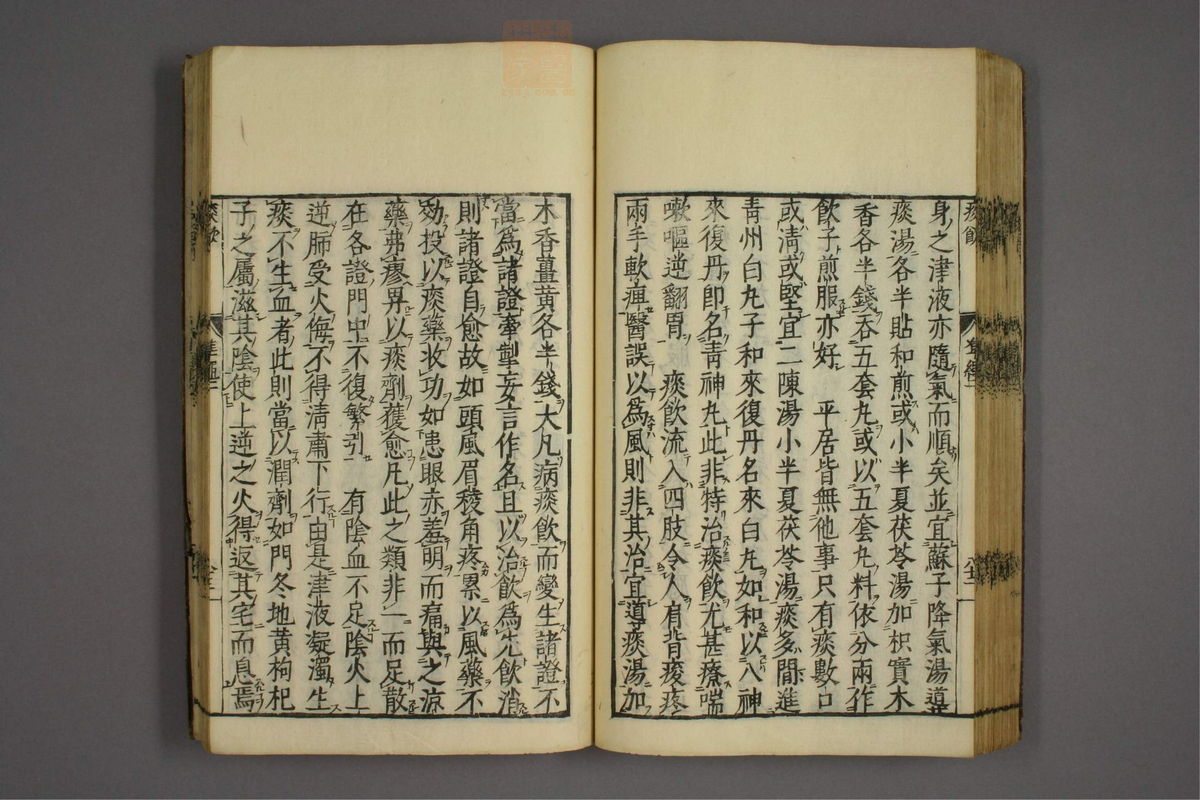 身之津液亦隨氣而順矣並宜蘇子降氣湯導
痰湯各半貼和煎或小半夏茯苓湯加枳實木
香各半錢吞五套丸或以五套丸料依分兩作
飲子煎服亦好 平居皆無他事只有痰數口
或清或堅宜二陳湯小半夏茯苓湯痰多間進
青州白丸子和來復丹名來白丸如和以八神
來復丹即名青神丸此非特治痰飲尤甚療喘
嗽嘔逆翻胃 痰飲流入四肢令人肩背痠疼
兩手軟痺醫誤以為風則非其治宜導痰湯加
木香薑黃各半錢大凡病痰飲而變生諸證不
當為諸證牽掣妄言作名且以治飲為先飲消
則諸證自愈故如頭風眉稜角疼累以風藥不
効投以痰藥收功如患眼赤羞明而痛與之涼
藥弗瘳畀以痰劑獲愈凡此之類非一而足散
在各證門中不復繁引 有陰血不足陰火上
逆肺受火侮不得清肅下行由是津液凝濁生
痰不生血者此則當以潤劑如門冬地黃枸杞
子之屬滋其陰使上逆之火得返其宅而息焉